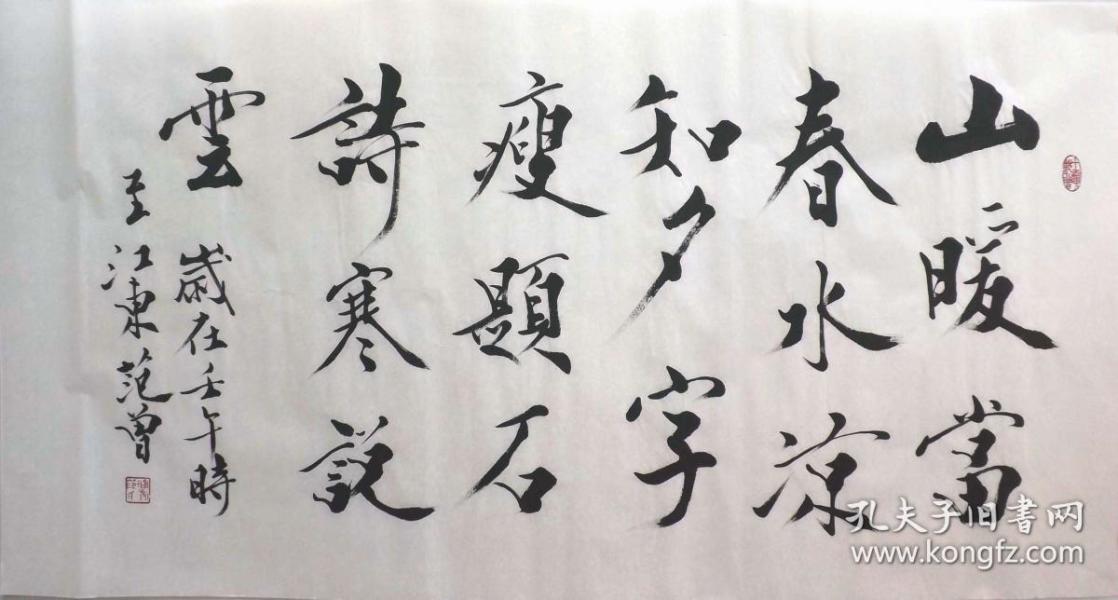 山暖當
春水凉
知夕字
瘦題石
詩寒説
雲
歲在壬午時
至江東范曾
孔夫子旧书网
www.kongfz.com